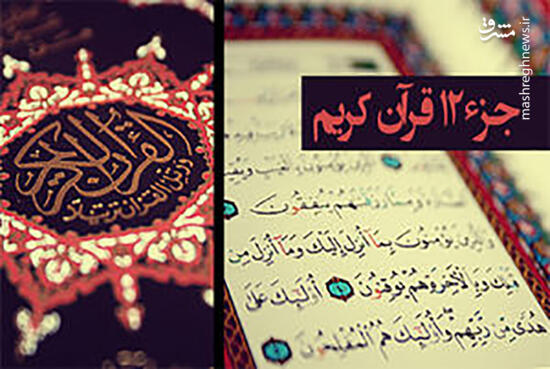 مشرق
mashreghnews.ir
جزء ۱۲ قرآن کریم
القرآن الكريم
ورتل القرآن ترتيلا
رَزَقْنَٰهُمْ يُنفِقُونَ
يُؤْمِنُونَ بِمَا أُنزِلَ إِلَيْكَ وَمَا أُنزِلَ مِن
قَبْلِكَ وَبِالْآخِرَةِ هُمْ يُوقِنُونَ ٤ أُولَٰئِكَ عَلَىٰ
هُدًى مِن رَّبِّهِمْ وَأُولَٰئِكَ هُمُ الْمُفْلِحُونَ ٥